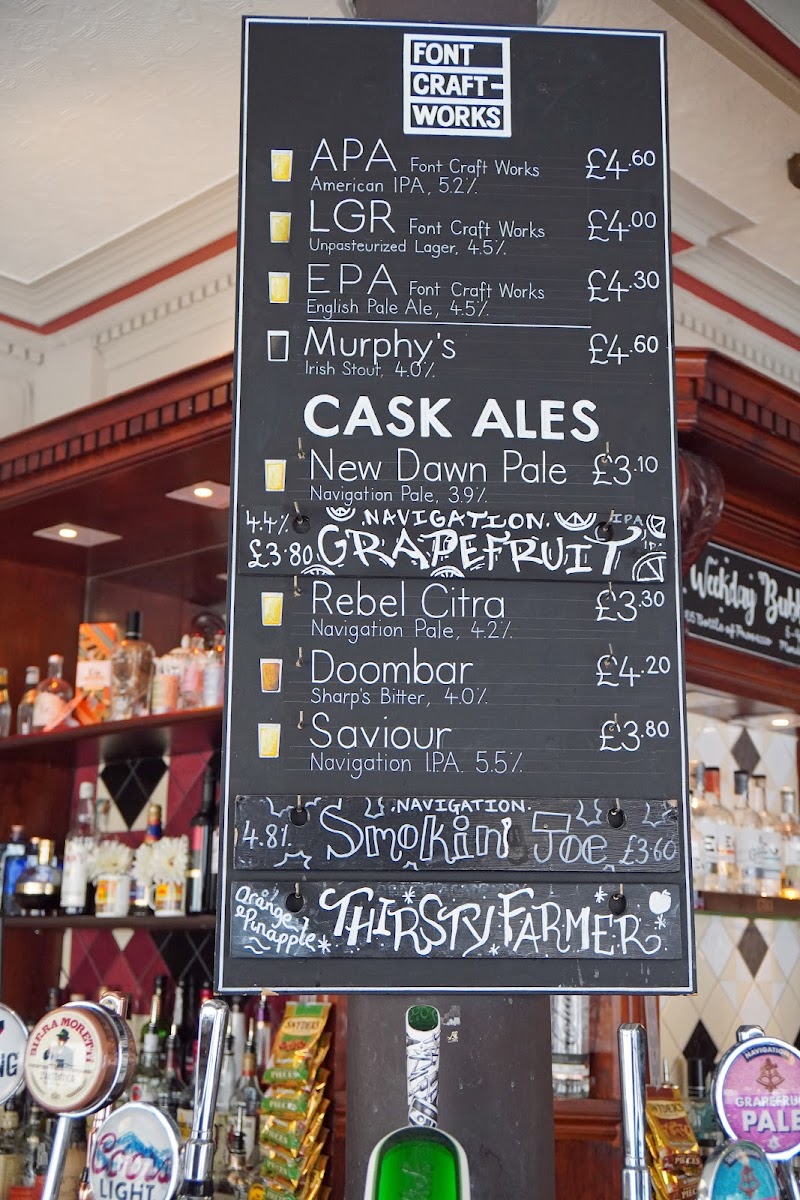 FONT
CRAFT-
WORKS
APA Font Craft Works £4.60
American IPA, 5.2%
LGR Font Craft Works £4.00
Unpasteurized Lager, 4.5%
EPA Font Craft Works £4.30
English Pale Ale, 4.5%
Murphy's £4.60
Irish Stout, 4.0%
CASK ALES
New Dawn Pale £3.10
Navigation Pale, 3.9%
4.4% .NAVIGATION. IPA
£3.80 GRAPEFRUIT
Rebel Citra £3.30
Navigation Pale, 4.2%
Doombar £4.20
Sharp's Bitter, 4.0%
Saviour £3.80
Navigation I.P.A. 5.5%
.NAVIGATION.
4.8%. Smokin' Joe £3.60
Orange
& Pinapple THIRSTY FARMER
Weekday Bubb
Bottle of Prosecco
BIRRA MORETTI
Coors
LIGHT
SNYDERS
PIECES
NAVIGATION
GRAPEFRU
PALE